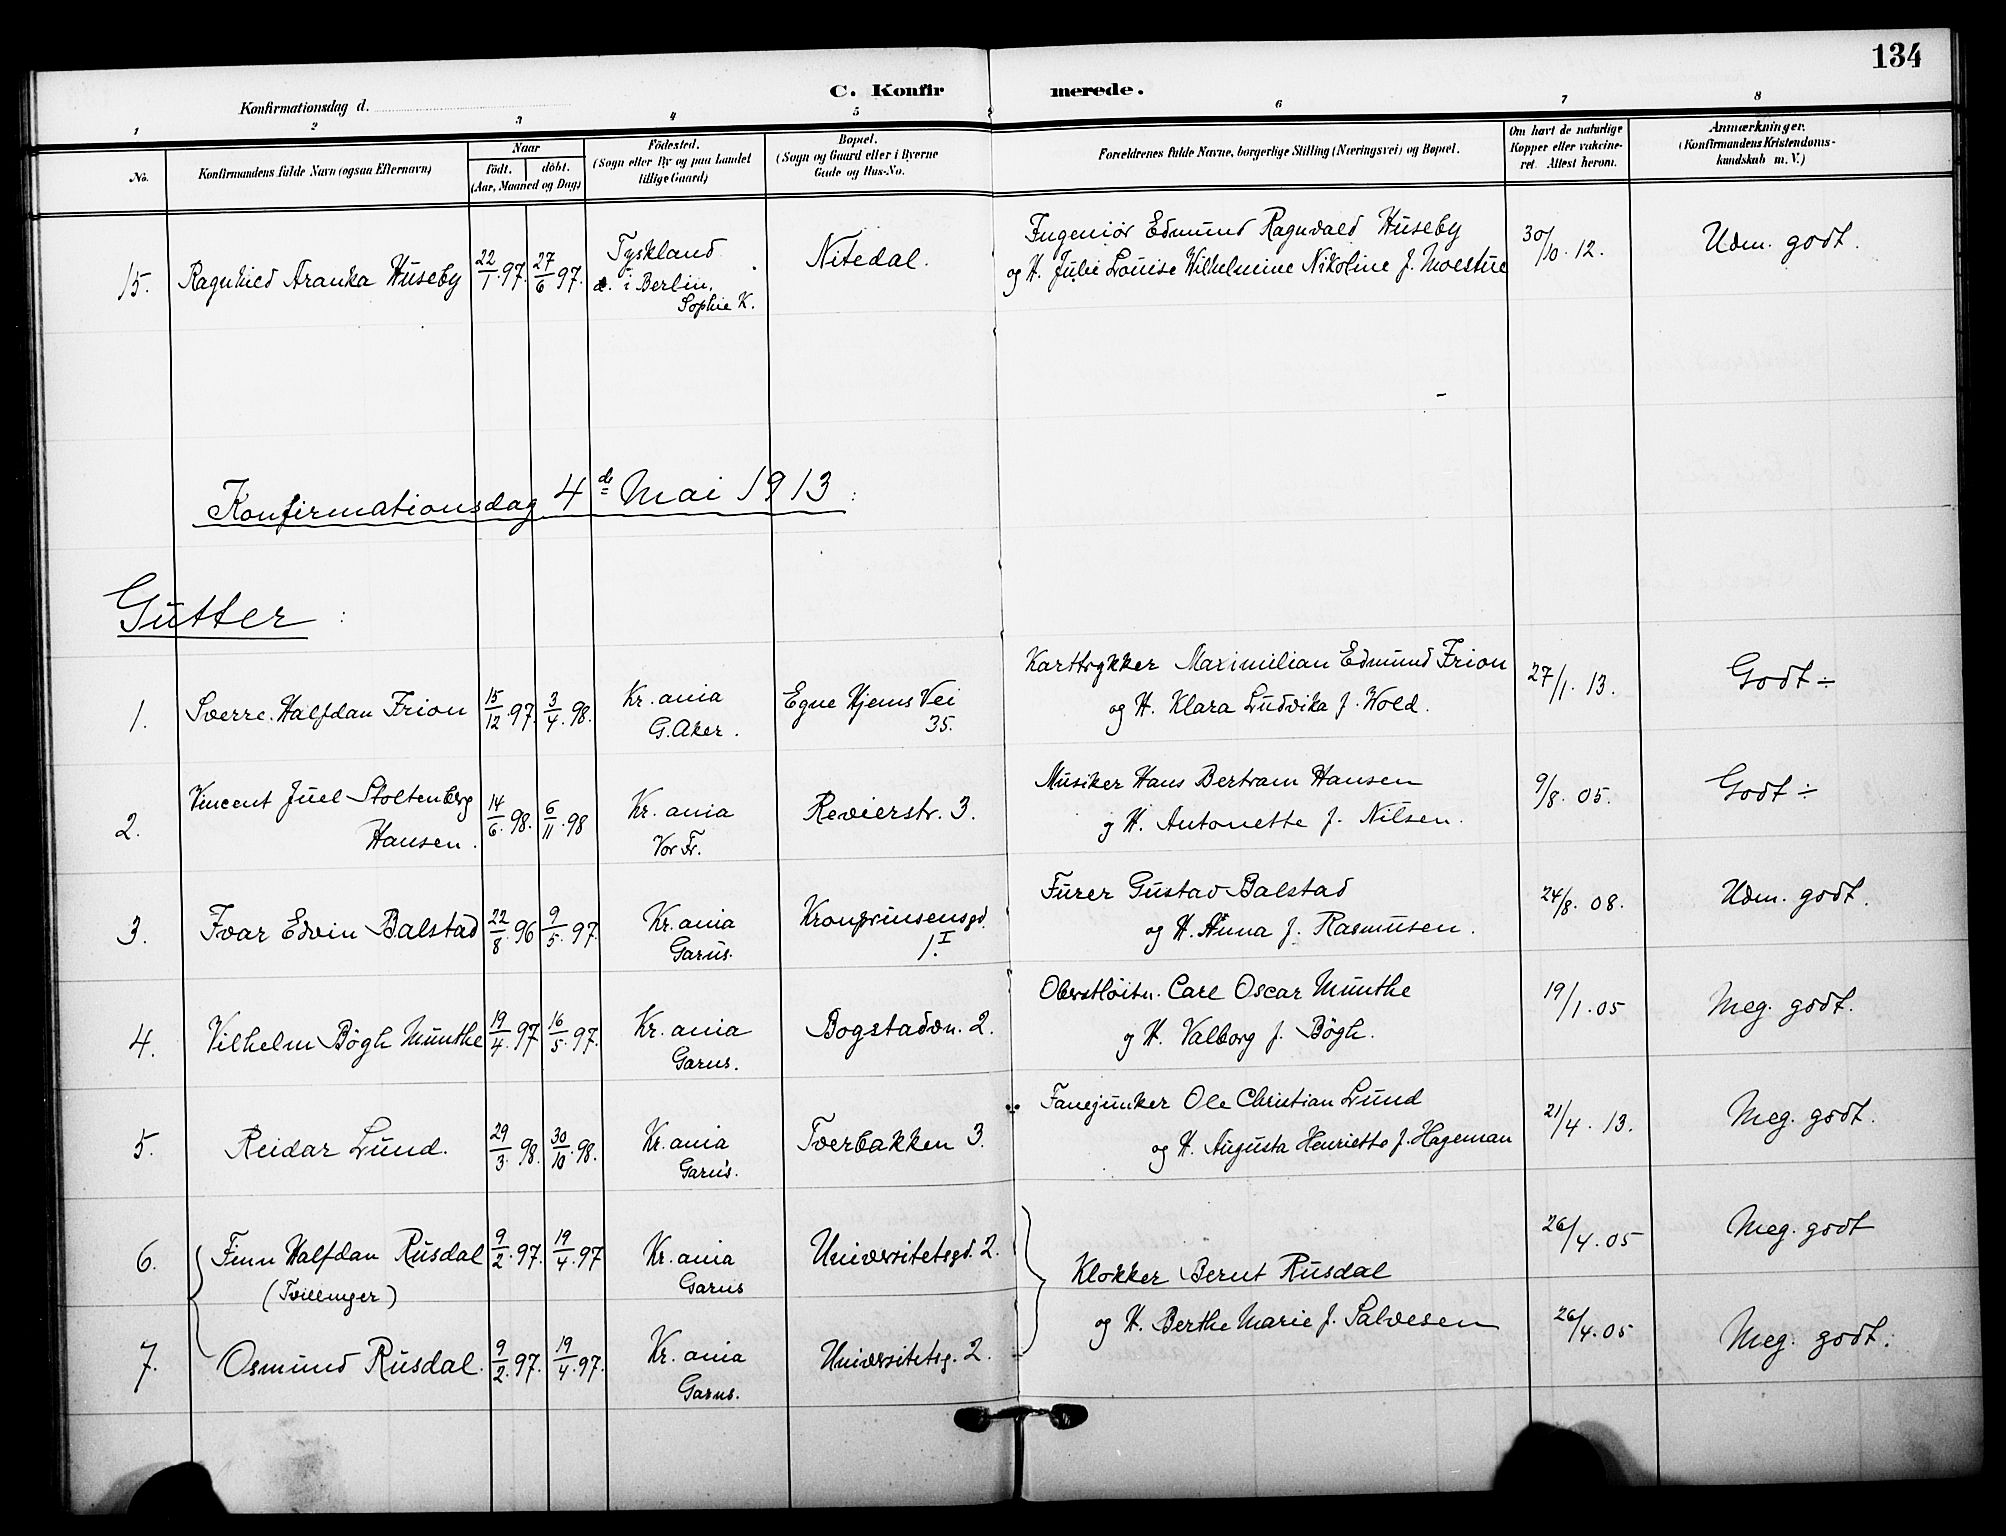 134
C. Konfirmerede.
Konfirmationsdag d.
1 2 3 4 5 6 7 8
No.
Konfirmandens fulde Navn (ogsaa Efternavn)
Naar
født. døbt.
(Aar, Maaned og Dag)
Fødested.
(Sogn eller By og paa Landet
tillige Gaard)
Bopæl.
(Sogn og Gaard eller i Byerne
Gade og Hus-No.
Forældrenes fulde Navne, borgerlige Stilling (Næringsvei) og Bopæl.
Om havt de naturlige
Kopper eller vakcine-
ret. Attest herom.
Anmærkninger.
(Konfirmandens Kristendoms-
kundskab m. V.)
15. Ragnhild Aranka Huseby 22/1.97. 27/6 97. Tyskland
d. i Berlin.
Sophie K.
Nitedal.
Ingeniör Edmund Ragnvald Huseby
og H. Julie Louise Wilhelmine Nikoline f. Moestue
30/10.12. Udm. godt.
Konfirmationsdag 4de Mai 1913:
Gutter:
1. Sverre Halfdan Frion 15/12 97. 3/4.98. Kr.ania
G.Aker.
Egne Hjems Vei
35.
Karttrykker Maximilian Edmund Frion
og H. Klara Ludvika f. Wold.
27/1.13. Godt ÷
2. Vincent Juel Stoltenberg
Hansen.
14/6.98. 6/11.98 Kr.ania
Vor Fr.
Revierstr. 3.
Musiker Hans Bertram Hansen
og H. Antonette f. Nilsen.
9/8.05. Godt ÷
3. Ivar Edvin Balstad 22/8.96 9/5.97. Kr.ania
Garus.
Kronprinsensgd.
1.I
Furer Gustav Balstad
og H. Anna f. Rasmusen.
24/8.08. Udm. godt.
4. Vilhelm Bögh Munthe 19/4.97 16/5.97. Kr.ania
Garus.
Bogstadvn. 2.
Oberstlöitn. Carl Oscar Munthe
og H. Valborg f. Bögh.
19/1.05 Meg. godt.
5. Reidar Lund. 29/3.98. 30/10.98. Kr.ania
Garus.
Tverbakken 3.
Fanejunker Ole Christian Lund
og H. Augusta Henriette f. Hageman
21/4.13. Meg. godt.
6. Finn Halfdan Rusdal
(Tvillinger)
9/2.97. 19/4.97 Kr.ania
Garus
Universitetsgd. 2.
Klokker Bernt Rusdal
og H. Berthe Marie f. Salvesen
26/4.05 Meg. godt
7. Osmund Rusdal. 9/2.97. 19/4.97. Kr.ania
Garus.
Universitetsg. 2.
26/4.05 Meg. godt.